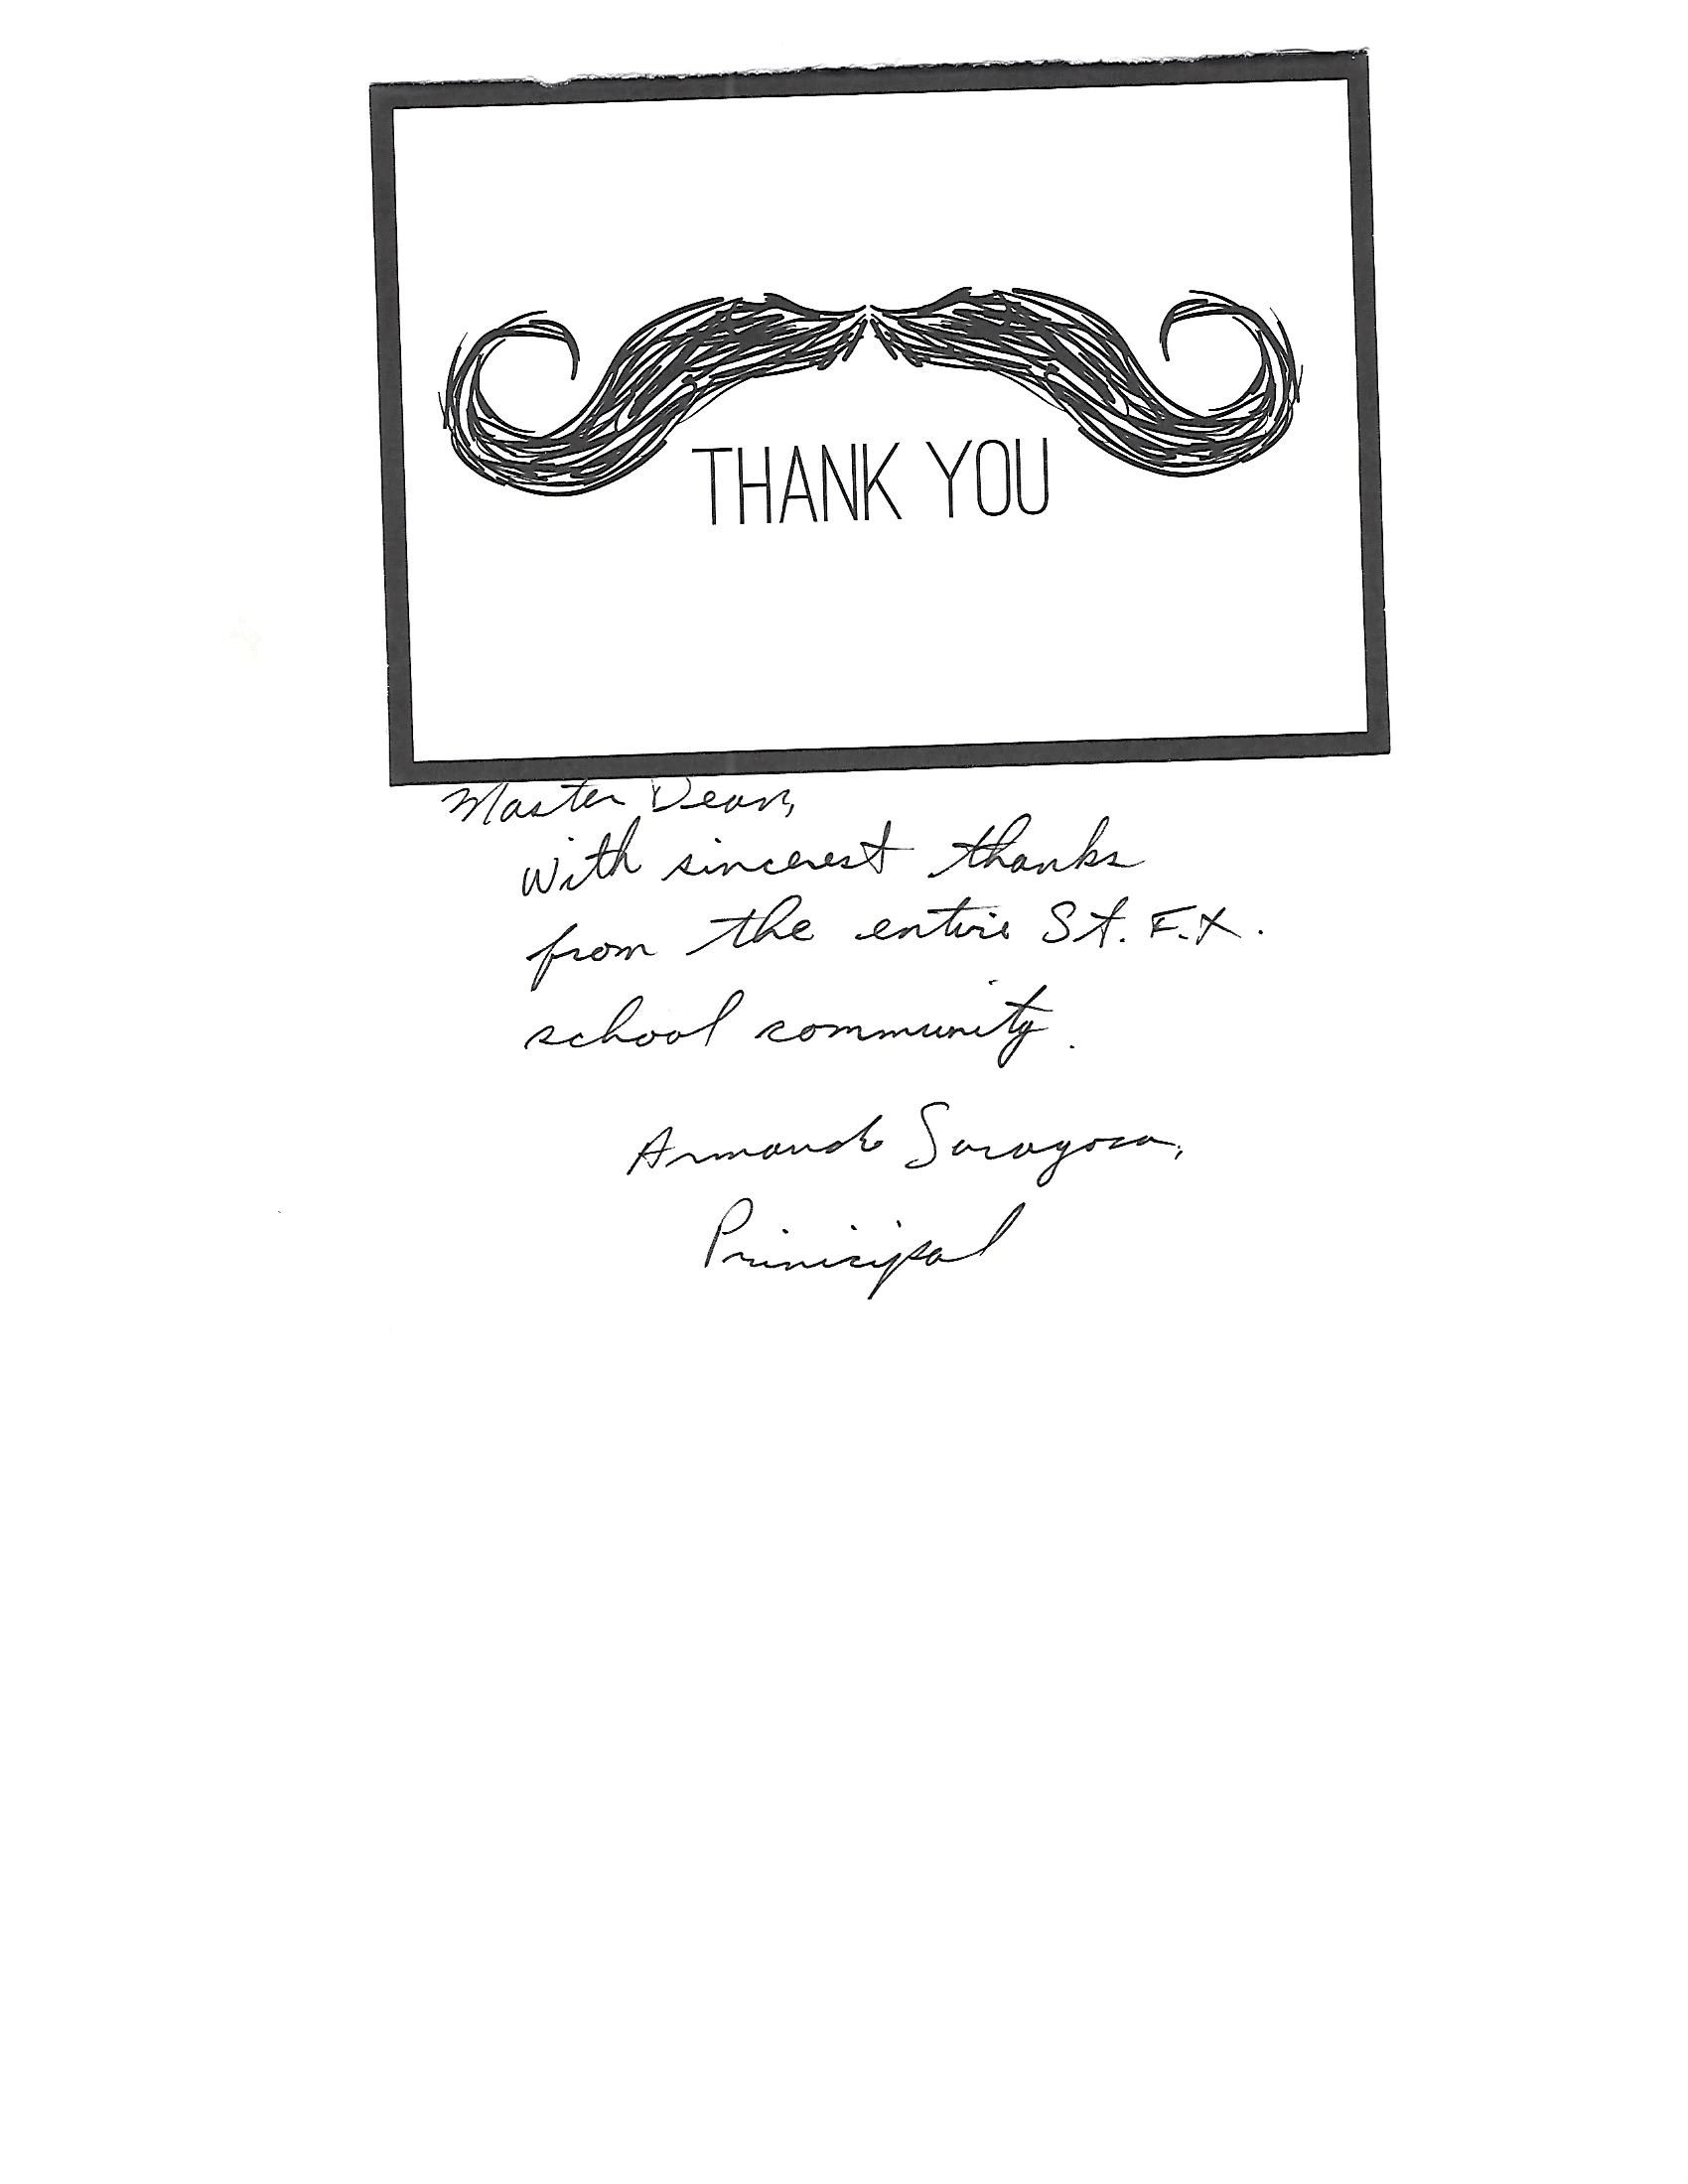 THANK YOU
Master Dean,
With sincerest thanks
from the entire St. F.X.
school community.
Armando Saragosa,
Prinicipal